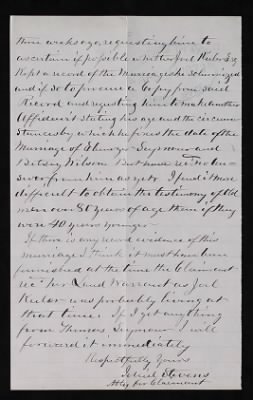 three weeks ago, requesting him to
ascertain if possible whether Joel Keeler Esq
Kept a record of the Marriages he Solemnized
and if so to procure a Copy from said
Record and requesting him to make another
Affidavit stating his age and the circum
stances by which he fixes the date of the
Marriage of Ebenezer Seymour and
Betsey Wilson But have recd no an
swer from him as yet. I find it more
difficult to obtain the testimony of Old
men over 80 years of age than if they
were 40 years younger
If there is any record evidence of this
marriage I think it must have been
furnished at the time the Claimant
recd her Land Warrant as Joel
Keeler was probably living at
that time. If I get anything
from Thomas Seymour I will
forward it immediately
Respectfully Yours
Stevens
Atty for Claimant